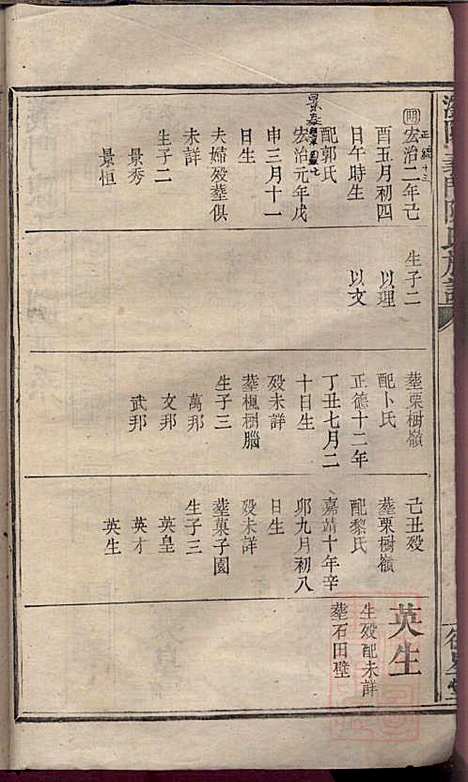 明宏治二年己
酉五月初四
日午時生
配郭氏
宏治元年戊
申三月十一
日生
夫婦歿塟俱
未詳
生子二
景秀
景恒
生子二
以理
以文
塟栗樹嶺
配卜氏
正德十二年
丁丑七月二
十日生
歿未詳
塟楓樹腦
生子三
萬邦
文邦
武邦
己丑歿
塟栗樹嶺
配黎氏
嘉靖十年辛
卯九月初八
日生
歿未詳
塟菓子園
生子三
英皇
英才
英生
英生
生歿配未詳
塟石田壁